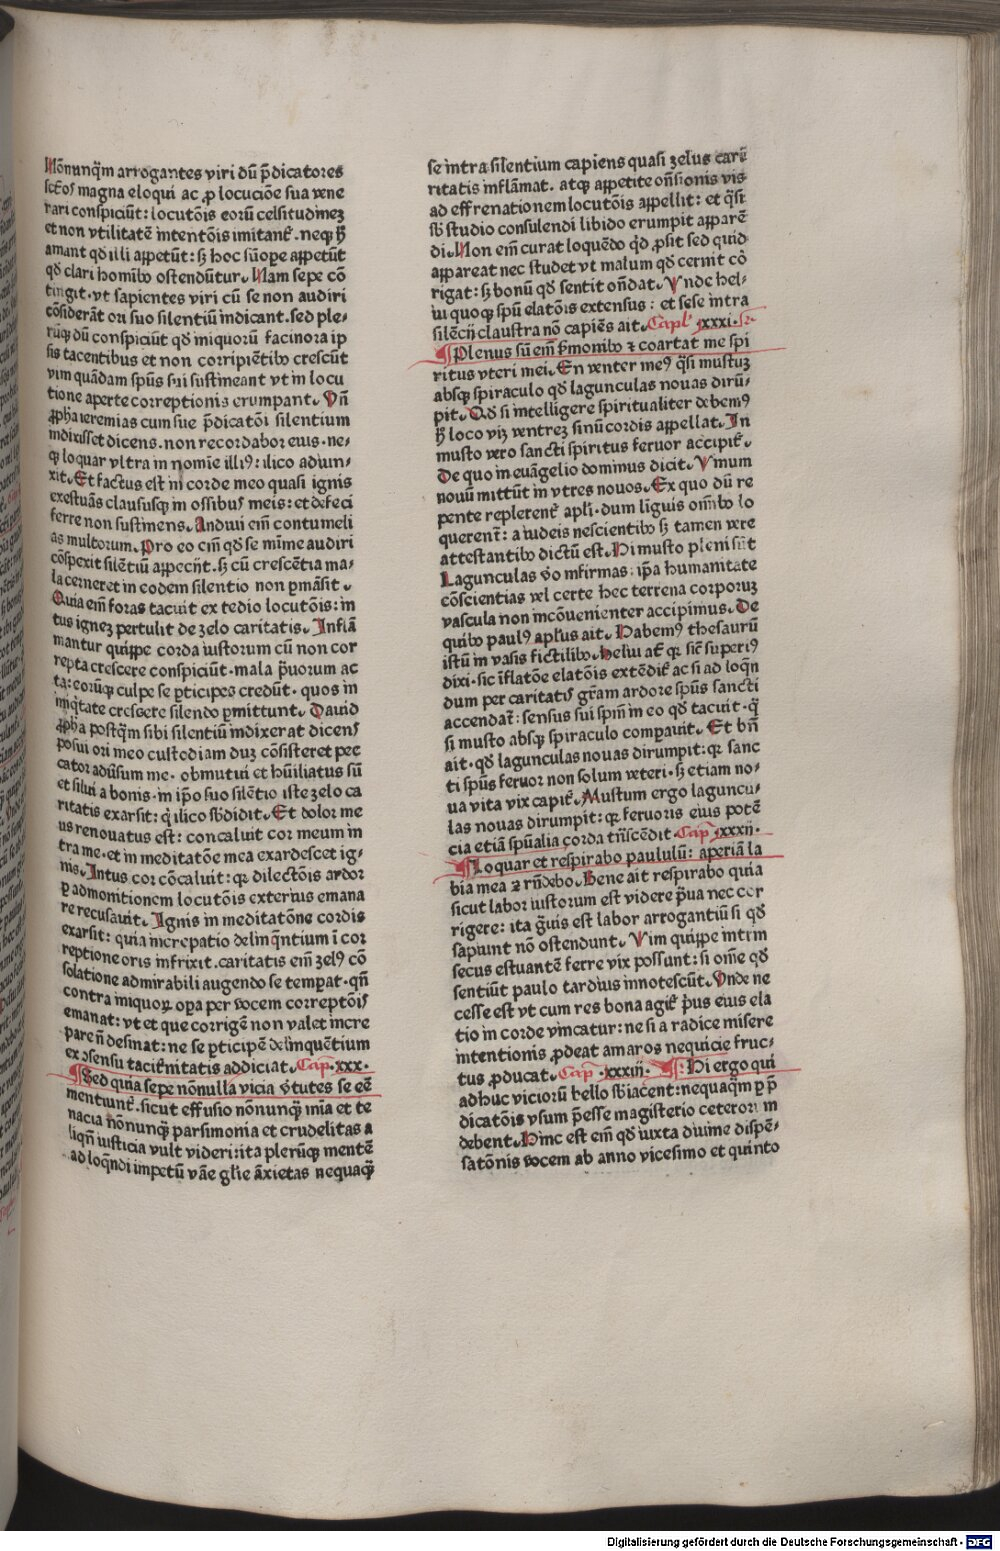 Nōnunq̃m arrogantes viri dū p̄dicatores
sctōs magna eloqui ac ꝓ locuciōe sua vene
rari conspiciūt: locutōis eorū celsitudinez
et non vtilitatē intentōis imitant᷑. neqꝫ ꝧ
amant qd̄ illi appetūt: sꝫ hoc sūope appetūt
qd̄ clari homībꝰ ostendūtur. Nam sepe cō
tingit. vt sapientes viri cū se non audiri
cōsiderāt ori suo silentiū indicant. sed ple-
rūqꝫ dū conspiciūt qd̄ miquorū facinora ip
sis tacentibus et non corripiētibꝰ crescūt
vim quādam spūs sui sustineant vt in locu
tione aperte correptionis erumpant. Vn̄
ꝓpha ieremias cum sue p̄dicatōi silentium
indixisset dicens. non recordabor euis. ne-
qꝫ loquar vltra in nomīe illiꝰ: ilico adiun-
xit. Et factus est in corde meo quasi ignis
exestuās claususqꝫ in ossibus meis: et defeci
ferre non sustinens. Andiui em̄ contumeli
as multorum. Pro eo em̄ qd̄ se mīme audiri
cōspexit silētiū appecn̄t. sꝫ cū crescētia ma-
la cerneret in eodem silentio non ꝑmāsit.
Quia em̄ foras tacuit ex tedio locutōis: in
tus ignez pertulit de zelo caritatis. Inflā
mantur quippe corda iustorum cū non cor
repta crescere conspiciūt. mala p̄uorum ac
ta: eorūqꝫ culpe se ꝑticipes credūt. quos in
iniq̄tate crescere silendo ꝑmittunt. Dauid
ꝓpha postq̄m sibi silentiū indixerat dicens
posui ori meo custodiam duꝫ cōsisteret pec
cator adūsum me. obmutui et hūiliatus sū
et silui a bonis. in ip̄o suo silētio iste zelo ca
ritatis exarsit: q̇ ilico sb̄didit. Et dolor me
us renouatus est: concaluit cor meum in
tra me. et in meditatōe mea exardescet ig-
nis. Intus cor cōcaluit: qꝛ dilectōis ardor
ꝑ admonitionem locutōis exterius emana
re recusauit. Ignis in meditatōne cordis
exarsit: quia increpatio delinq̄ntium ī cor
reptione oris infrixit. caritatis em̄ zelꝰ cō
solatione admirabili augendo se temꝑat. qn̄
contra iniquoꝝ oꝑa per vocem correptōis
emanat: vt et que corrigē non valet incre
pare n̄ desinat: ne se ꝑticipē delinquētium
ex ↄsensu taciťnitatis addiciat. Cap̄. xxx.
¶ Sed quia sepe nōnulla vicia v̄tutes se eē
mentiunt᷑. sicut effusio nōnunqꝫ mīa et te
nacia nōnunqꝫ parsimonia et crudelitas a
liqn̄ iusticia vult videri: ita plerūqꝫ mentē
ad loqn̄di impetū vāe glīe āxietas nequaqꝫ
se intra silentium capiens quasi zelus carū
ritatis inflāmat. atqꝫ appetite on̄sionis vis
ad effrenationem locutōis appellit: et q̄si
sb̄ studio consulendi libido erumpit apparē
di. Non em̄ curat loquēdo qd̄ ꝓsit sed quid
appareat nec studet vt malum qd̄ cernit cō
rigat: sꝫ bonū qd̄ sentit on̄dat. Vnde hel-
iu quoqꝫ spū elatōis extensus: et sese intra
silēcij claustra nō capiēs ait. Capl᷑ xxxi.
¶ Plenus sū em̄ ſ̄monibꝰ ⁊ coartat me spi
ritus vteri mei. En venter meꝰ q̄si mustuꝫ
absqꝫ spiraculo qd̄ lagunculas nouas dirū-
pit. Qd̄ si intelligere spiritualiter debemꝰ
ꝧ loco viꝫ ventreꝫ sinū cordis appellat. In
musto vero sancti spiritus feruor accipit᷑.
De quo in euāgelio dominus dicit. Vinum
nouū mittūt in vtres nouos. Ex quo dū re
pente replerent᷑ apl̄i. dum linguis om̄ibꝰ lo
querent᷑: a iudeis nescientibꝰ sꝫ tamen vere
attestantibꝰ dictū est. Hi musto pleni sūt
Lagunculas v̄o infirmas: ip̄a humanitate
cōscientias vel certe hec terrena corporuꝫ
vascula non incōuenienter accipimus. De
quibꝰ paulꝰ apl̄us ait. Habemꝰ thesaurū
istū in vasis fictilibꝰ. Heliu at᷑ qꝛ sic̄ supeřiꝰ
dixi. sic īflatōe elatōis extēdit᷑ ac si ad loqn̄
dum per caritatis gr̄am ardore spūs sancti
accendat᷑: sensus sui spm̄ in eo qd̄ tacuit. q̄
si musto absqꝫ spiraculo comꝑauit. Et bn̄
ait. qd̄ lagunculas nouas dirumpit: qꝛ sanc
ti spūs feruor non solum veteri. sꝫ etiam no-
ua vita vix capit᷑. Mustum ergo laguncu-
las nouas dirumpit: qꝛ feruoris eius potē
cia etiā spūalia corda trn̄scēdit. Cap̄ xxxij.
¶ Loquar et respirabo paululū: aperiā la
bia mea ⁊ rn̄debo. Bene ait respirabo quia
sicut labor iustorum est videre p̄ua nec cor
rigere: ita g̈uis est labor arrogantiū si qd̄
sapiunt nō ostendunt. Vim quippe intrin
secus estuantē ferre vix possunt: si om̄e qd̄
sentiūt paulo tardius innotescūt. Vnde ne
cesse est vt cum res bona agit᷑ p̄us eius ela
tio in corde vincatur: ne si a radice misere
intentionis ꝓdeat amaros nequicie fruc-
tus ꝓducat. Cap̄. xxxiij. ¶ Hi ergo qui
adhuc viciorū bello sb̄iacent: nequaq̄m ꝑ p̄
dicatōis vsum p̄esse magisterio ceterorū m
debent. Hinc est em̄ qd̄ iuxta diuine dispē-
satōnis vocem ab anno vicesimo et quinto
Digitalisierung gefördert durch die Deutsche Forschungsgemeinschaft - DFG